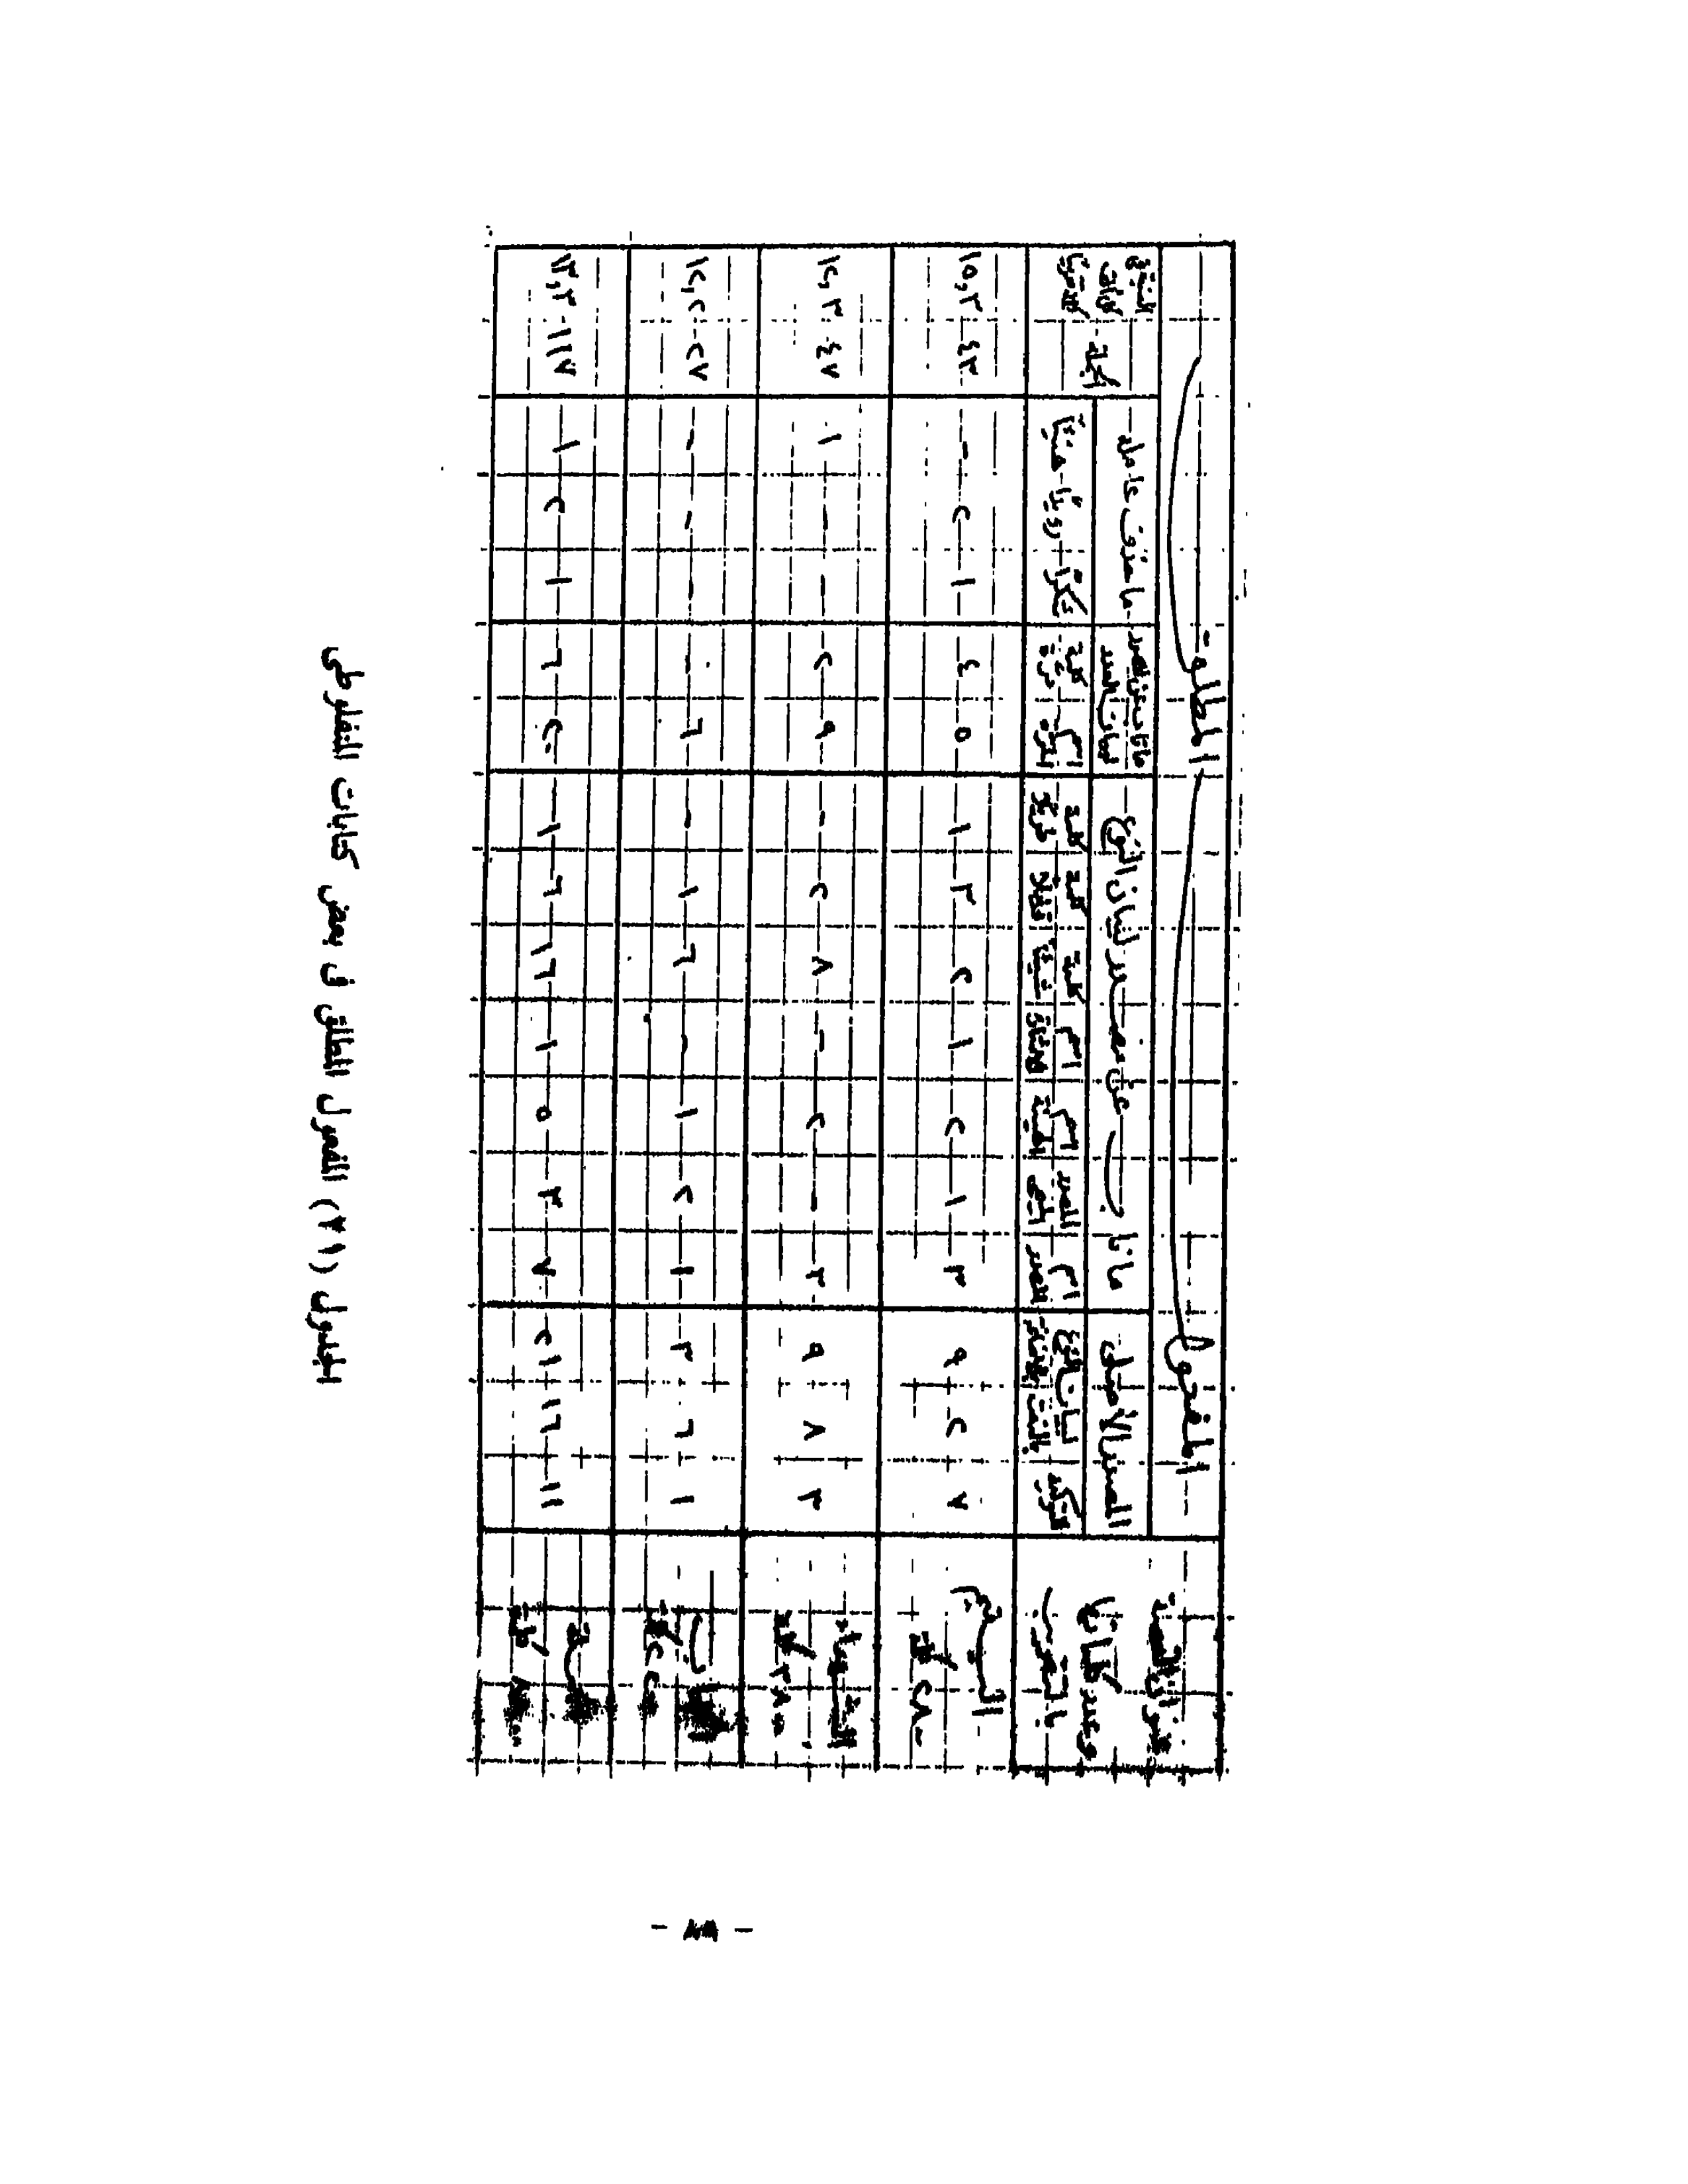 المفعول المطلق
عنوان القصة وعدد كلماتها بالتقريب
المصدر الأصلى
ما ناب عن مصدر لبيان النوع
ما ناب عن مصدر لبيان العدد
ما حذف عامله
الجملة
للتوكيد لبيان النوع بالنعت بالإضافة اسم المصدر المصدر الميمى اسم الهيئة اسم الإشارة كلمة شيئا كلمة قليلا كلمة اسم المرة كلمة مرة شكرًا رويدًا هنيئًا
اليتيم ٢٨٠٠ كلمة ٧ ٢ ٩ ٣ ١ ٢ ١ ٢ ٣ ١ ٥ ٤ ١ ٢ - ٤٣ ١٥,٣
الشهداء ٣٨٠٠ كلمة ٣ ٨ ٩ ٣ - ٢ - ٨ ٢ - ٩ ٢ - - ١ ٤٧ ١٢,٣
الحجاب ٢٢٠٠ كلمة ١ ٦ ٣ ١ ٢ ١ - ٦ ١ - ٦ - - - - ٢٧ ١٢,٢
كلمة ١١ ١٦ ٢١ ٧ ٣ ٥ ١ ١٦ ٦ ١ ٢٠ ٦ ١ ٢ ١ ١١٧ ١٣,٣
الجدول (٢١) المفعول المطلق فى بعض كتابات المنفلوطى